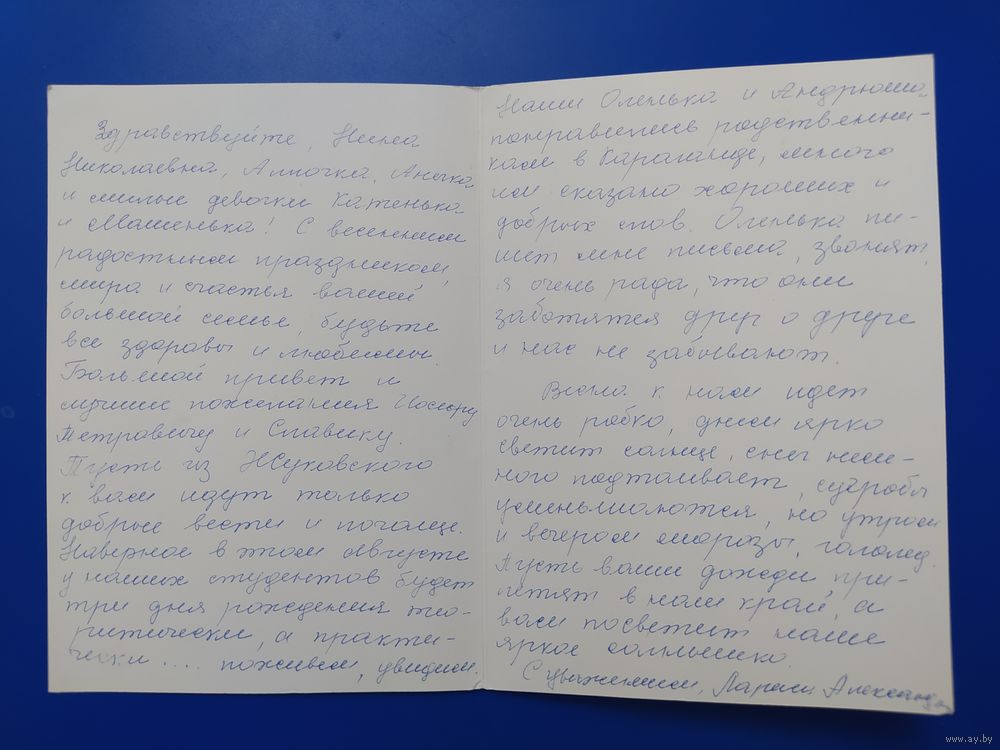 Здравствуйте, Нина
Николаевна, Аллочка, Анечка
и милые девочки Катенька
и Машенька! С весенним
радостным праздником,
мира и счастья вашей
большой семье, будьте
все здоровы и любимы.
Большой привет и
лучшие пожелания Иосифу
Петровичу и Славику.
Пусть из Жуковского
к вам идут только
добрые вести и почаще.
Наверное в этом августе
у наших студентов будет
три дня рождения тео-
ритически, а практи-
чески .... поживем, увидим.
Наши Оленька и Андрюша
понравились родственни-
кам в Караганде, много
им сказано хороших и
добрых слов. Оленька пи-
шет мне письма, звонят,
я очень рада, что они
заботятся друг о друге
и нас не забывают.
Весна к нам идет
очень робко, днем ярко
светит солнце, снег немн-
ного подтаивает, сугробы
уменьшаются, но утром
и вечером морозы, гололед.
Пусть ваши дожди при-
летят в наш край, а
вам посветит наше
яркое солнышко.
С уважением, Лариса
www.ay.by